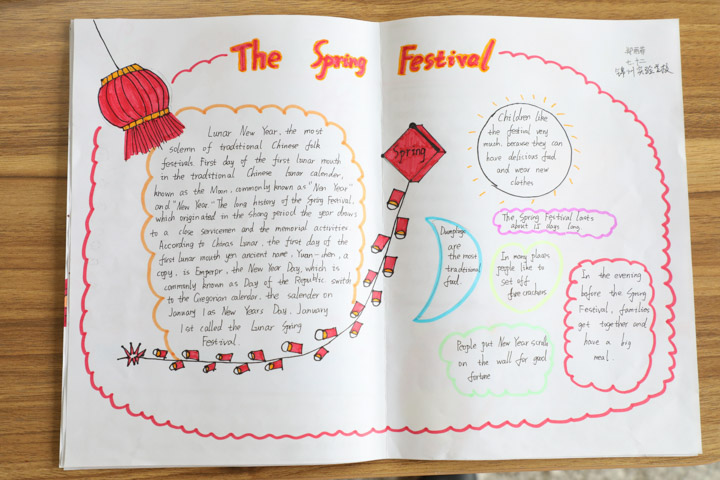 The Spring Festival
七.十二
锦州实验学校
Lunar New Year, the most
solemn of traditional Chinese folk
festivals. First day of the first lunar mouth
in the traditional Chinese lunar calender,
known as the Moon, commonly known as "Nen Year"
and "New Year" The long history of the Spring Festival,
which originated in the shang period the year draws
to a close servicemen and the memorial activities.
According to Chinas Lunar, the first day of the
first lunar mouth yen ancient name, Yuan-chen, a
copy, is Emperpr, the New Year Day, which is
commenly known as Day of the Republic switch
to the Gregonan calendar, the salender on
January 1 as New Years Day, January
1st called the Lunar Spring
Festival.
Spring
Children like
the festival very
much, because they can
have delicious food
and wear new
clothes
The Spring Festival lasts
about 15 days long
Dumplings
are
the most
traditional
food.
In many places
people like to
set off
fire crackers
In the evening
before the Spring
Festival, families
get together and
have a big
meal.
People put New Year scrolls
on the wall for good
fortune